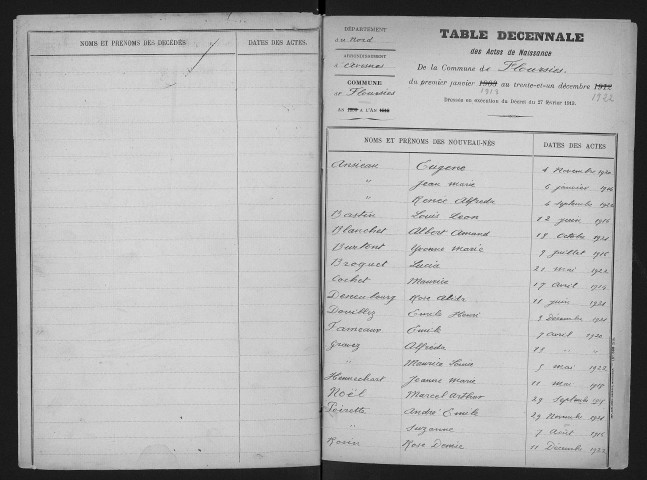 NOMS ET PRÉNOMS DES DÉCÉDÉS
DATES DES ACTES.
DÉPARTEMENT
du Nord
ARRONDISSEMENT
d'Avesnes
COMMUNE
de Floursies
TABLE DECENNALE
des Actes de Naissance
De la Commune de Floursies.
du premier janvier 1903 au trente-et-un décembre 1912
1913 1922
Dressée en exécution du Décret du 27 février 1913.
NOMS ET PRÉNOMS DES NOUVEAU-NÉS
DATES DES ACTES
Ansieau Eugene 4 Novembre
" Jean Marie 6 janvier
" Renée Alfréda 4 Septembre
Bastin Louis Leon 12 juin
Blanchet Albert Amand 18 Octobre 1921
Yvonne Marie 9 juillet
Broquet Lucie 21 mai 1922
Cochet Maurice 17 Avril 1914
Rose 11 juin 1921
Emile Henri 9 Décembre
Emile 7 Avril 1920
Gravez Alfréda " "
" Maurice Louis 5 mai 1922
Hennechart Jeanne Marie 11 mai
Noël Marcel Arthur 29 Septembre
Poirette André Emile 29 Novembre
" Suzanne 7 Août
Rose Denise 11 Décembre 1922